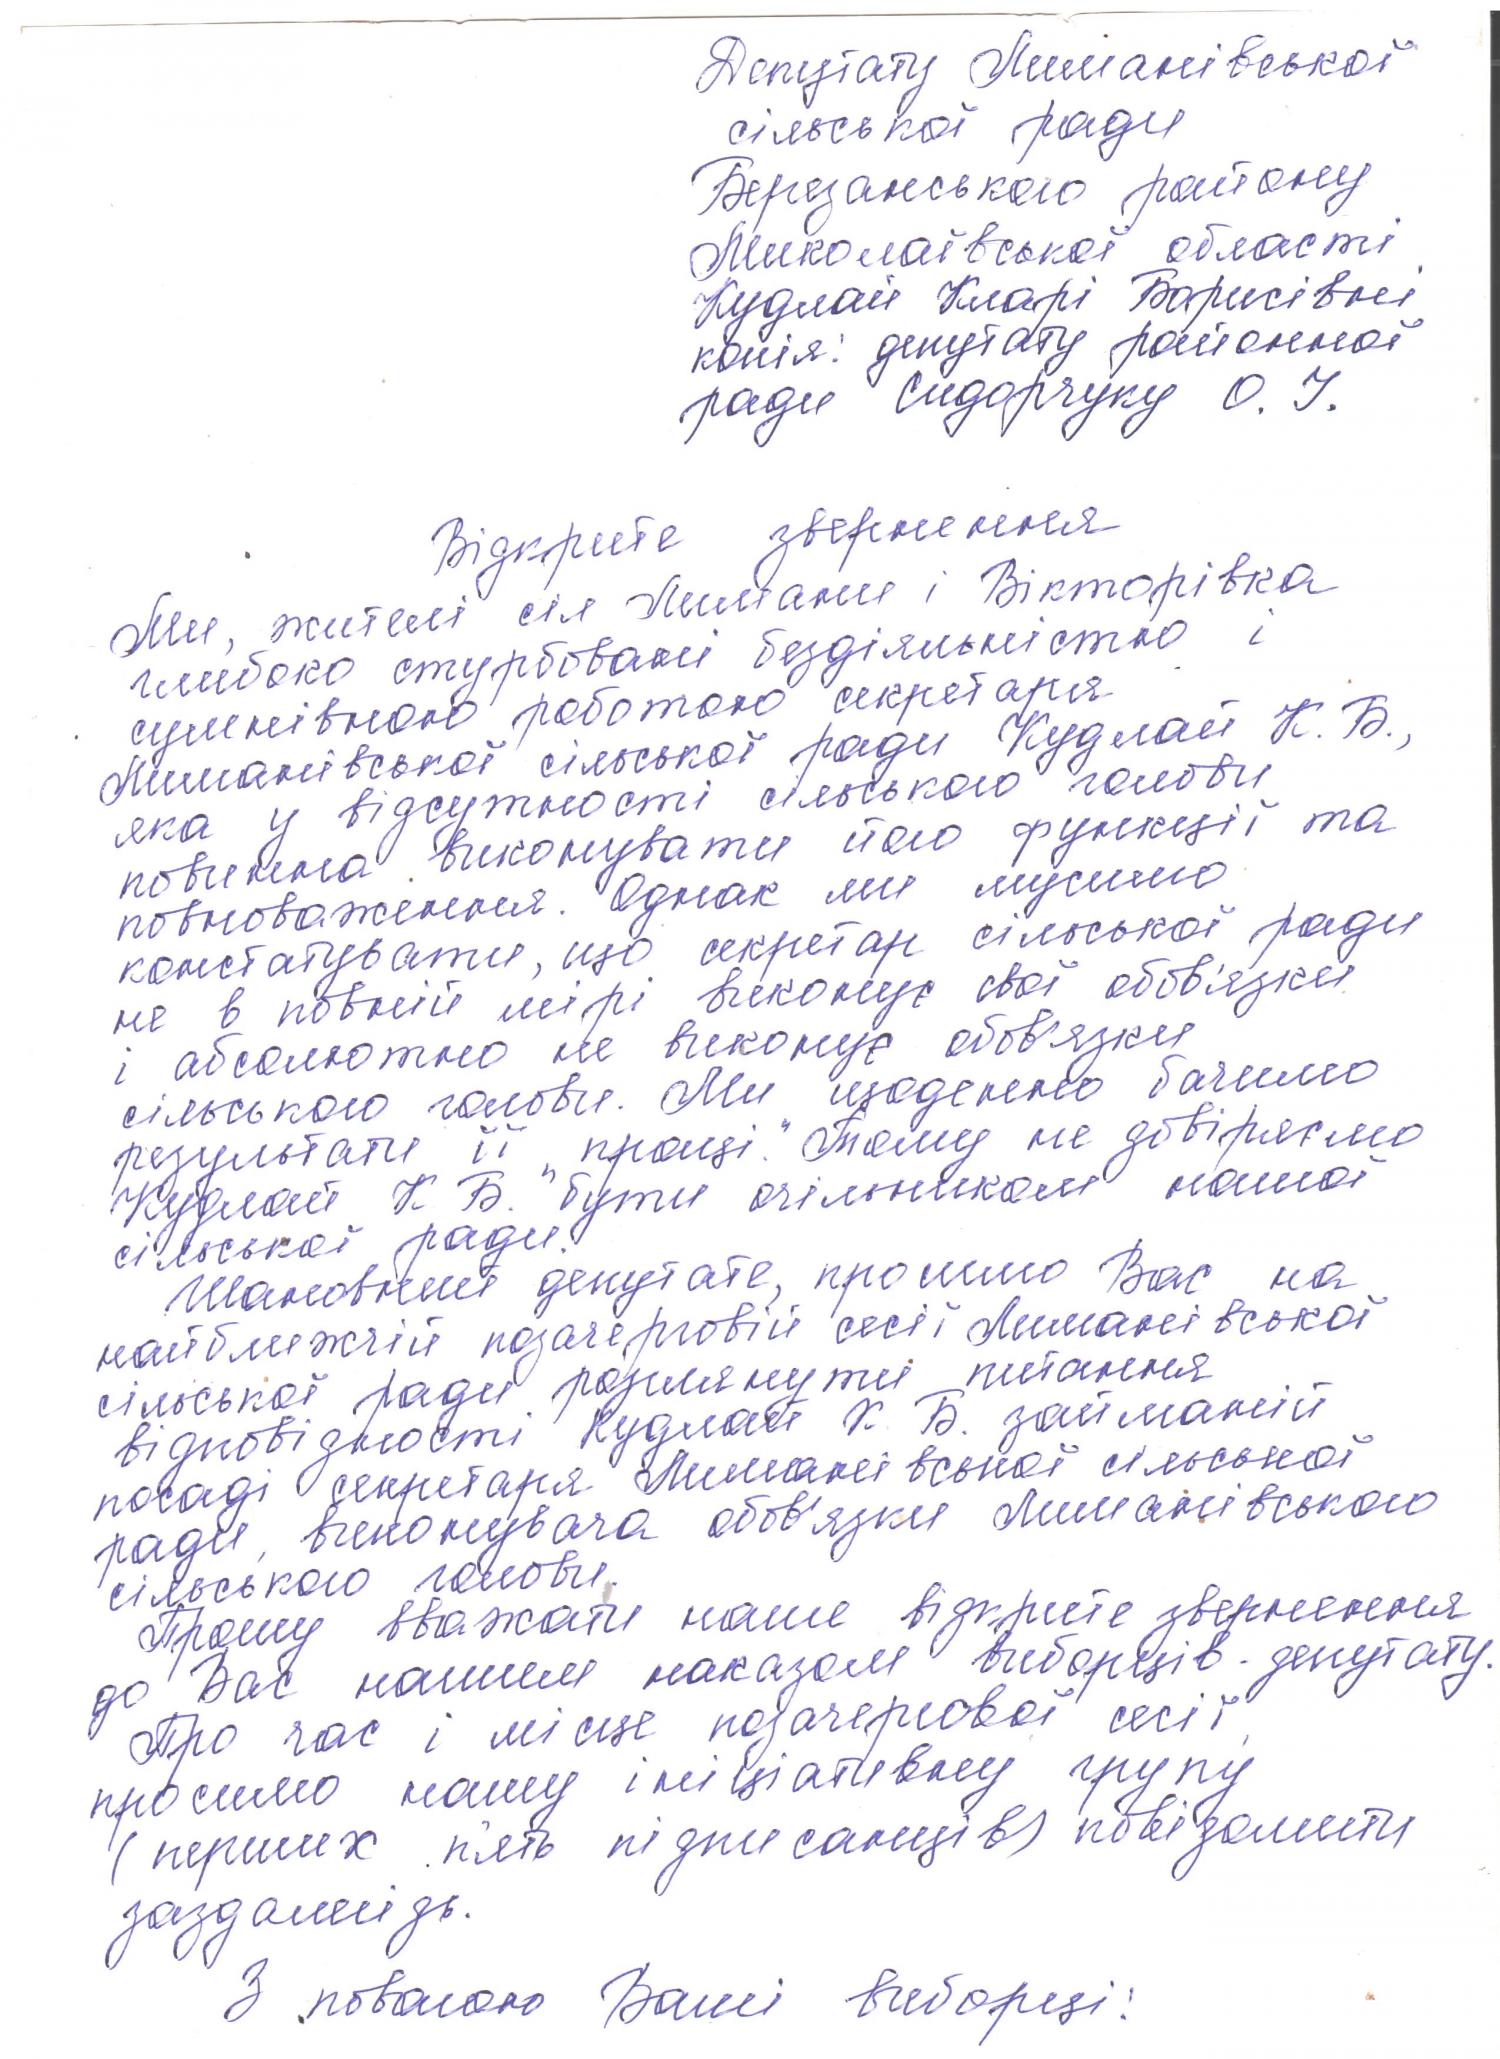 Депутату Лиманівської
сільської ради
Березанського району
Миколаївської області
Кудлай Кларі Борисівні
копія: депутату районної
ради Сидорчуку О. І.
Відкрите звернення
Ми, жителі сіл Лимани і Вікторівка
глибоко стурбовані бездіяльністю і
сумнівною роботою секретаря
Лиманівської сільської ради Кудлай К. Б.,
яка у відсутності сільського голови
повинна виконувати його функції та
повноваження. Однак ми мусимо
констатувати, що секретар сільської ради
не в повній мірі виконує свої обов'язки
і абсолютно не виконує обов'язки
сільського голови. Ми щоденно бачимо
результати її „праці". Тому не довіряємо
Кудлай К. Б. бути очільником нашої
сільської ради.
Шановний депутате, просимо Вас на
найближчій позачерговій сесії Лиманівської
сільської ради розглянути питання
відповідності Кудлай К. Б. займаній
посаді секретаря Лиманівської сільської
ради, виконувача обов'язки Лиманівського
сільського голови.
Прошу вважати наше відкрите звернення
до Вас нашим наказом виборців - депутату.
Про час і місце позачергової сесії
просимо нашу ініціативну групу
(перших п'ять підписанців) повідомити
заздалегідь.
З повагою Ваші виборці: